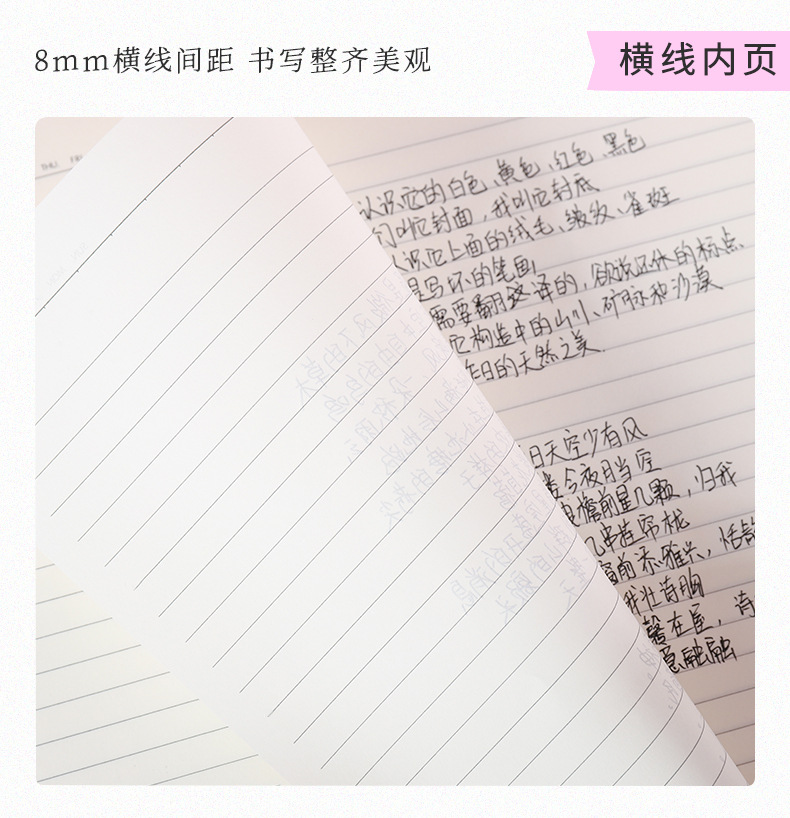 8mm横线间距 书写整齐美观
横线内页
THU.
认识它的白色、黄色、红色、黑色
们叫它封面，我叫它封底
认识它上面的绒毛、皴纹、雀斑
是写坏的笔画
需要翻译的，欲说还休的标点、
它构造中的山川、矿脉和沙漠
昨日的天然之美
日天空少有风
今夜月当空
檐前星几颗，归我
几串挂帘栊
窗前添雅兴，恬静
我壮诗胸
馨在屋，诗
意融融